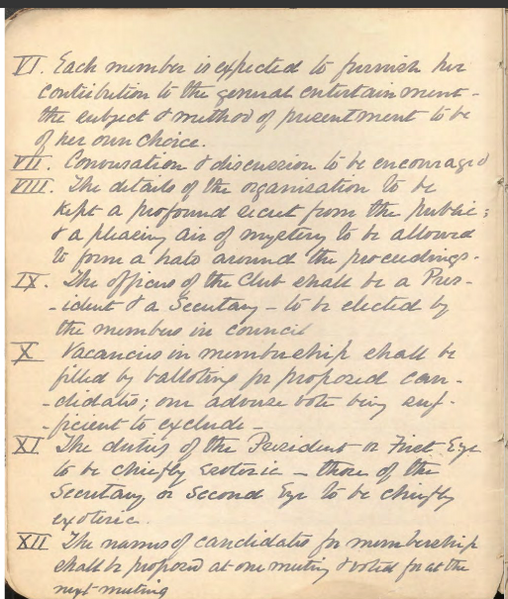 VI. Each member is expected to furnish her
contribution to the general entertainment -
the subject & method of presentment to be
of her own choice.
VII. Conversation & discussion to be encouraged
VIII. The details of the organisation to be
kept a profound secret from the public;
& a pleasing air of mystery to be allowed
to form a halo around the proceedings.
IX. The officers of the Club shall be a Pres-
-ident & a Secretary - to be elected by
the members in council
X Vacancies in membership shall be
filled by balloting for proposed can-
-didates; one adverse vote being suf-
-ficient to exclude -
XI The duties of the President or First Eye
to be chiefly esoteric - those of the
Secretary or Second Eye to be chiefly
exoteric.
XII The names of candidates for membership
shall be proposed at one meeting & voted for at the
next meeting